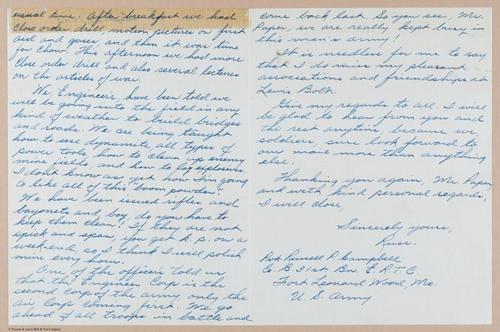 usual time. After breakfast we had
close order drill, motion pictures on first
aid and gases, and then it was time
for chow. This afternoon we had more
close order drill and also several lectures
on the articles of war.
We, Engineers, have been told we
will be going into the field in any
kind of weather to build bridges
and roads. We are being taught
how to use dynamite, all types of
power tools, how to clean up enemy
mine fields, and how to lay explosives.
I don't know as yet how I'm going
to like all of this "boom powder."
We have been issued rifles and
bayonets and boy, do you have to
keep them clean! If they are not
spick and span, you get k.p. on a
week-end, so I think I will polish
mine every hour.
One of the officers told us
that the Engineer Corp is the
second corp of the army, only the
Air Corp coming first. We go
ahead of all troops in battle and
come back last. So you see, Mr.
Paper, we are really kept busy in
this man's army.
It is needless for me to say
that I do miss my pleasant
associations and friendships at
Lewis Bolt.
Give my regards to all. I will
be glad to hear from you and
the rest anytime, because we
soldiers, sure look forward to
our mail more than anything
else.
Thanking you again Mr. Paper,
and with kind personal regards,
I will close,
Sincerely yours,
Russ.
Pvt. Russell P. Campbell
Co. B 31st. Bn. E.R.T.C.
Fort Leonard Wood, Mo.
U.S. Army